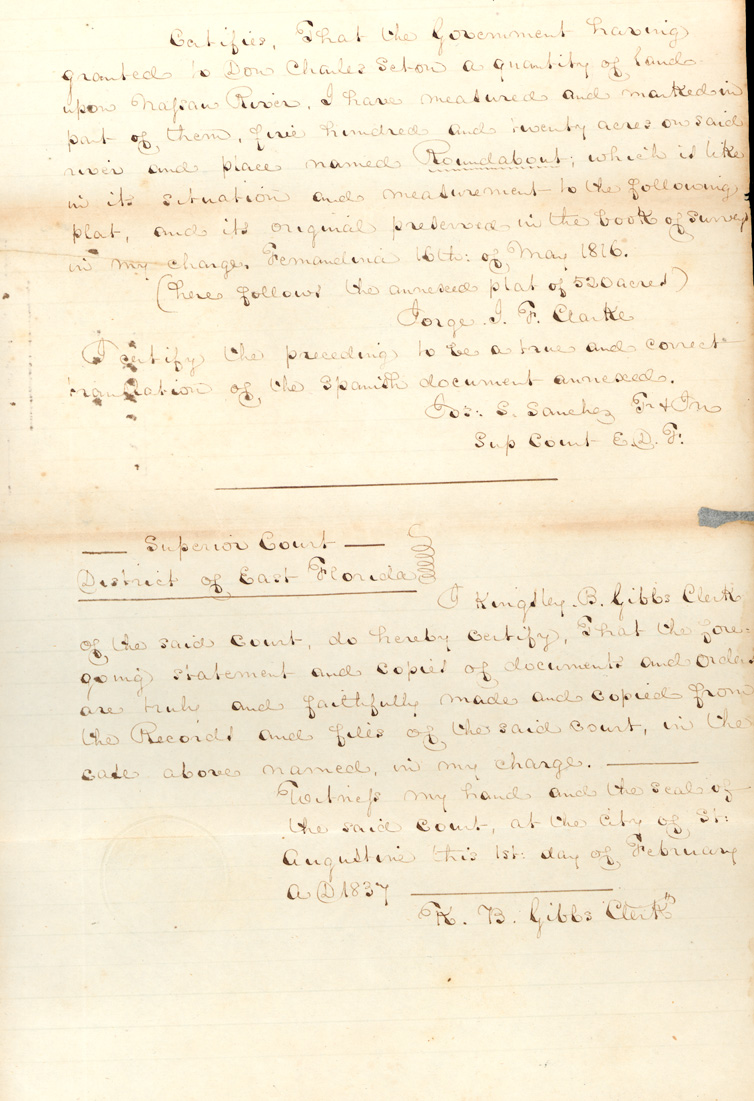 Certifies, That the Government having
granted to Don Charles Seton a quantity of land
upon Nassau River, I have measured and marked in
part of them, five hundred and twenty acres on said
river and place named Roundabout; which is like
in its situation and measurement to the following
plat, and its original preserved in the book of Surveys
in my charge. Fernandina 16th: of May 1816.
(here follows the annexed plat of 520 acres)
Jorge J. F. Clarke
I certify the preceding to be a true and correct
translation of the Spanish document annexed.
Jos: S. Sanchez Tr & In
Sup Court E.D. F:
Superior Court
District of East Florida
I Kingsley. B. Gibbs Clerk
of the said Court, do hereby certify, That the fore-
going statement and copies of documents and orders
are truly and faithfully made and copied from
the Records and files of the said court, in the
case above named, in my charge.
Witness my hand and the seal of
the said court, at the City of St:
Augustine this 1st: day of February
A D 1837
K. B. Gibbs Clerk